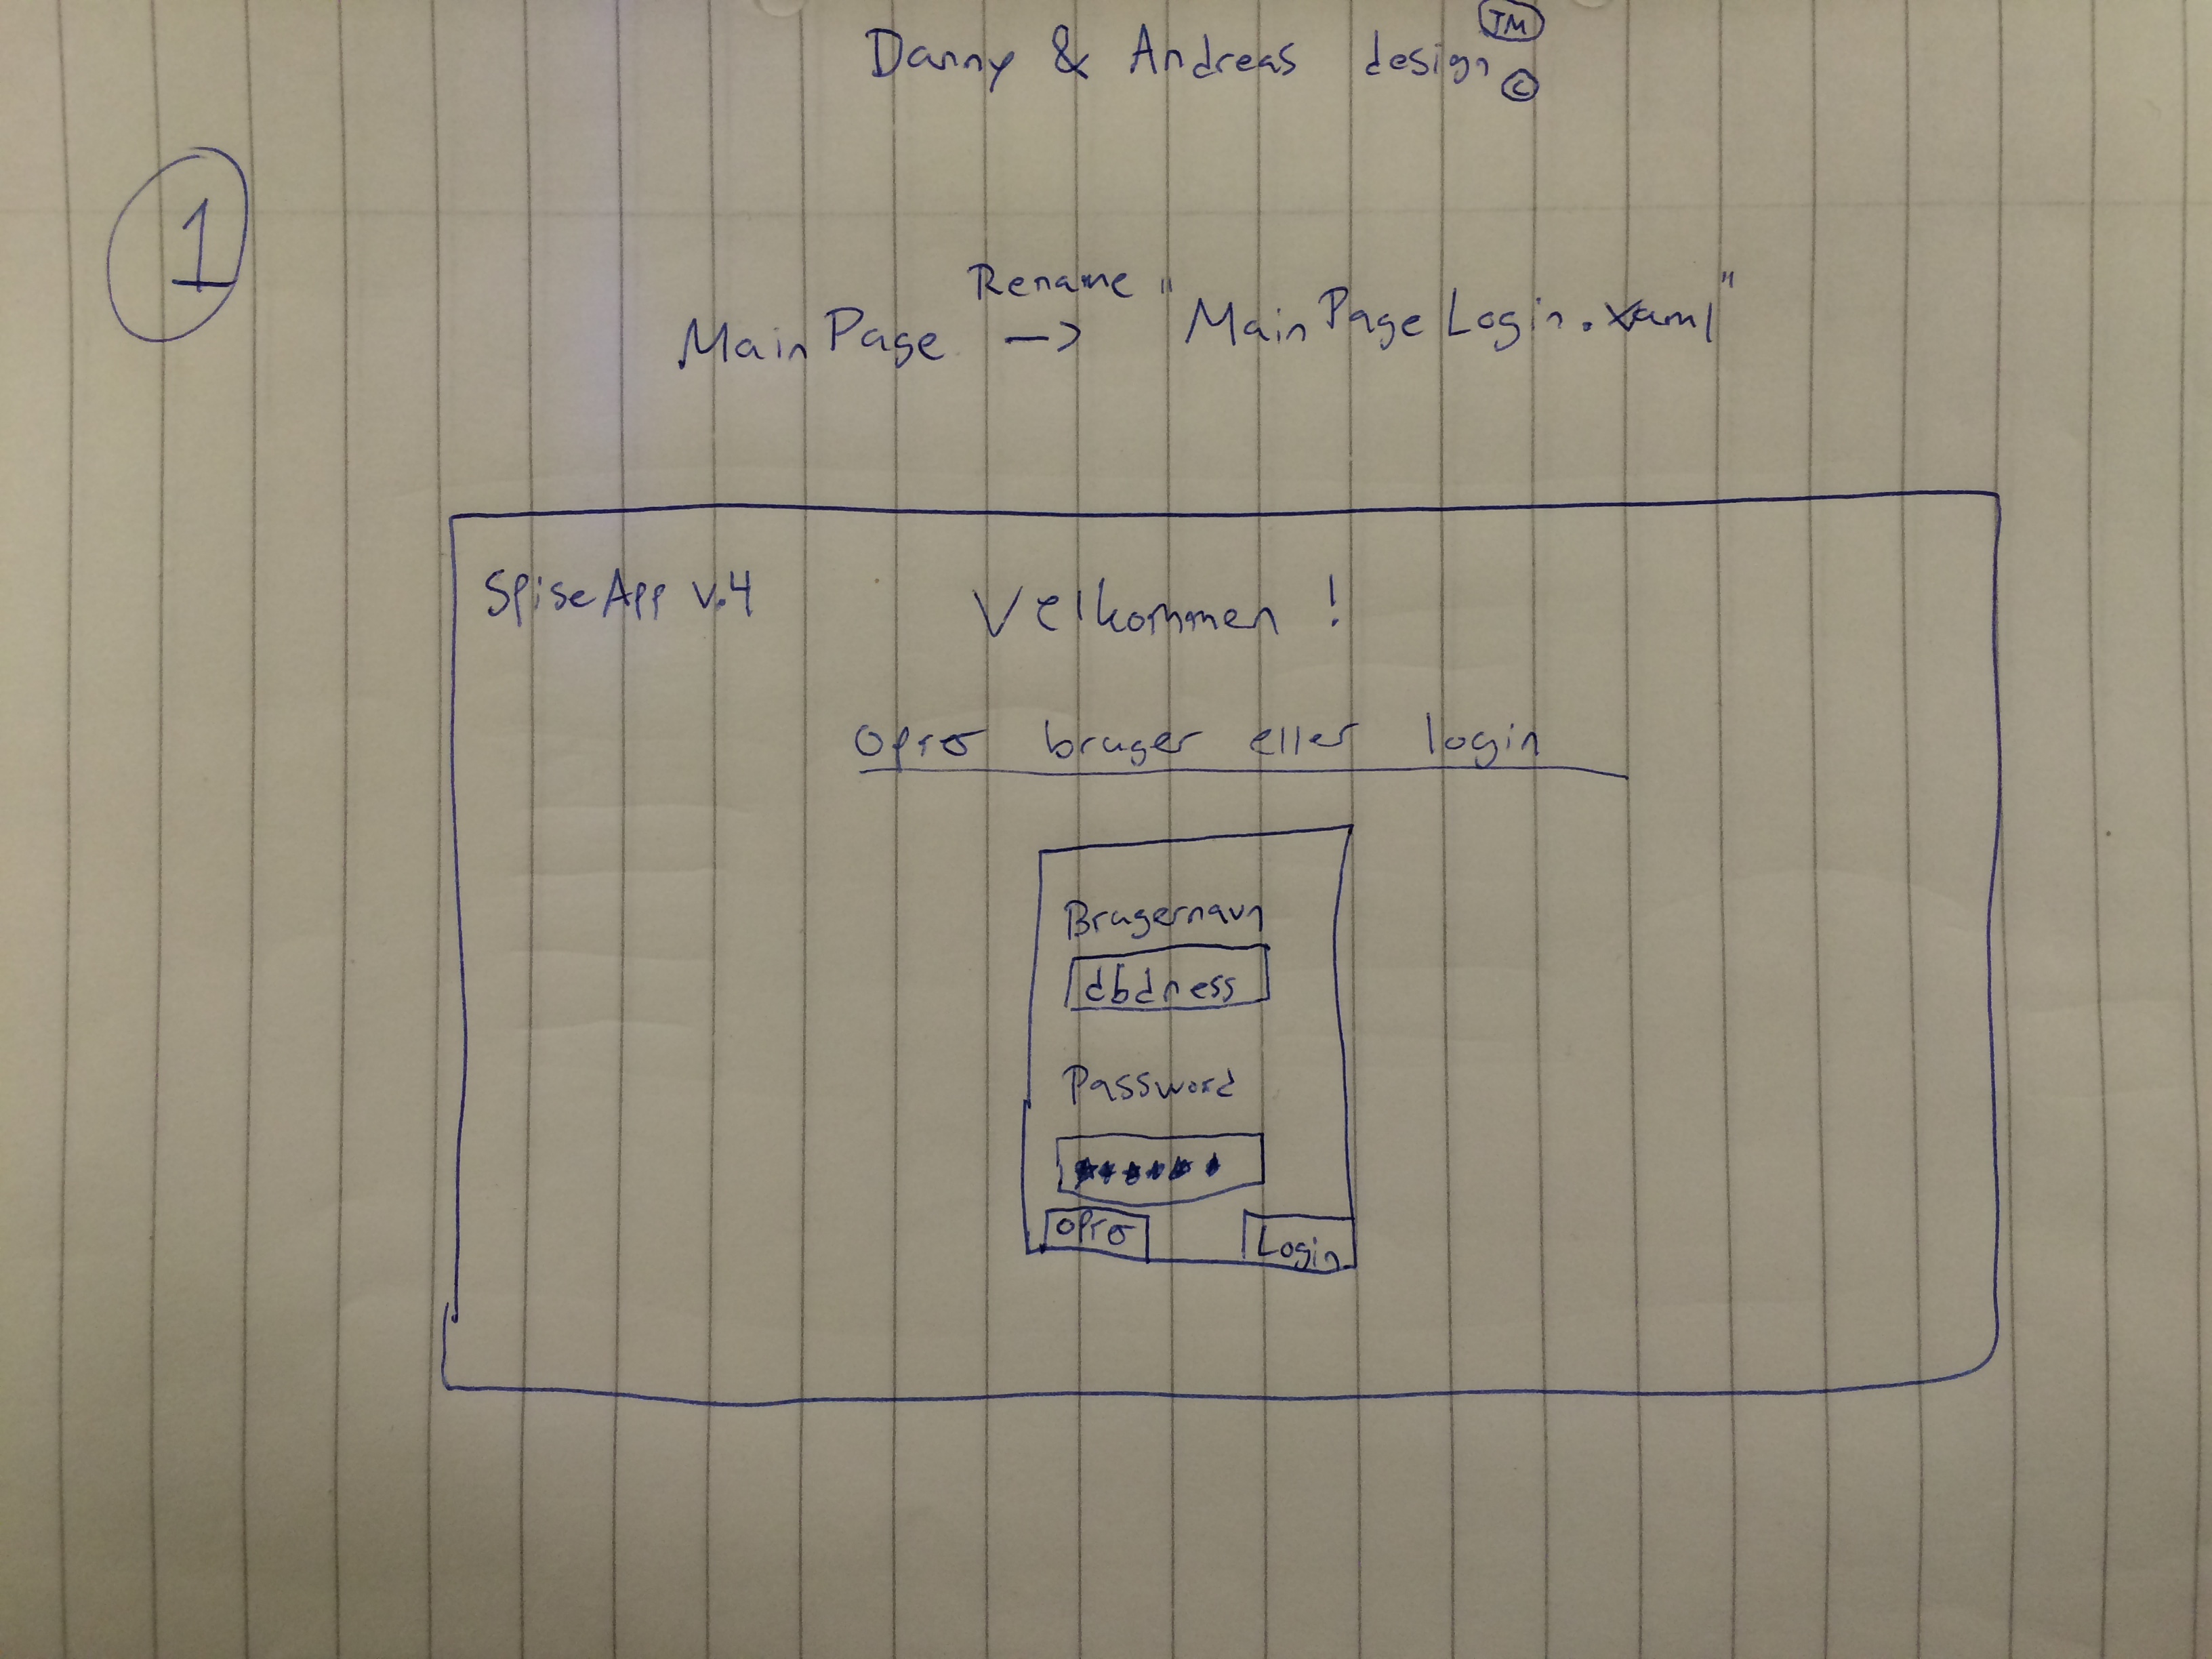 Danny & Andreas design TM ©
1
Rename
MainPage -> "MainPageLogin.xaml"
SpiseApp v.4
Velkommen !
Opro bruger eller login
Brugernavn
dbdness
Password
******
Opro
Login